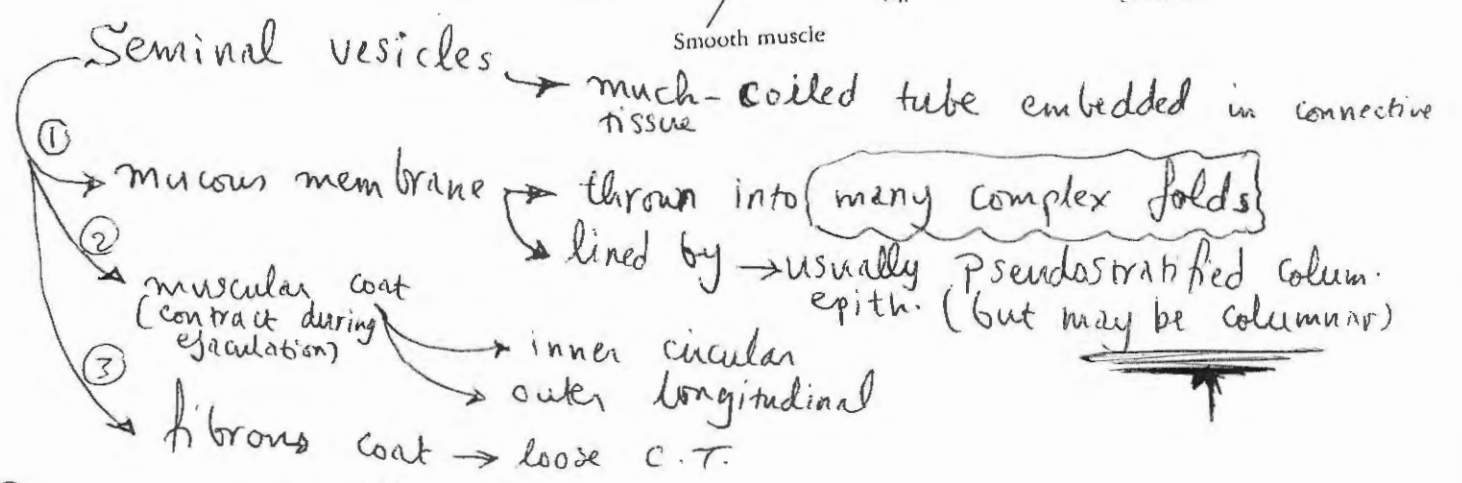 Smooth muscle
Seminal vesicles → much-coiled tube embedded in connective
tissue
① mucous membrane → thrown into many complex folds
→ lined by → usually Pseudostratified colum.
epith. (but may be columnar)
② muscular coat
(contract during
ejaculation)
→ inner circular
→ outer longitudinal
③ fibrous coat → loose C.T.